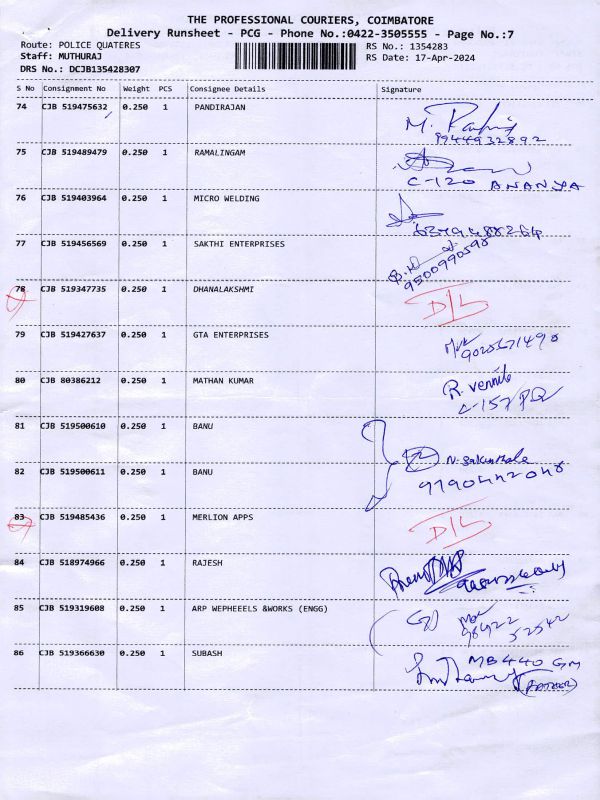 THE PROFESSIONAL COURIERS, COIMBATORE
Delivery Runsheet - PCG - Phone No.:0422-3505555 - Page No.:7
Route: POLICE QUATERES RS No.: 1354283
Staff: MUTHURAJ RS Date: 17-Apr-2024
DRS No.: DCJB135428307
S No Consignment No Weight PCS Consignee Details Signature
74 CJB 519475632 0.250 1 PANDIRAJAN
9944932892
75 CJB 519489479 0.250 1 RAMALINGAM
C-120 ANANYA
76 CJB 519403964 0.250 1 MICRO WELDING
77 CJB 519456569 0.250 1 SAKTHI ENTERPRISES
9500990598
78 CJB 519347735 0.250 1 DHANALAKSHMI
D/L
79 CJB 519427637 0.250 1 GTA ENTERPRISES
80 CJB 80386212 0.250 1 MATHAN KUMAR
R. Vennila
C-157 PQ
81 CJB 519500610 0.250 1 BANU
82 CJB 519500611 0.250 1 BANU
83 CJB 519485436 0.250 1 MERLION APPS
D/L
84 CJB 518974966 0.250 1 RAJESH
85 CJB 519319608 0.250 1 ARP WEPHEEELS &WORKS (ENGG)
98422 52542
86 CJB 519366630 0.250 1 SUBASH
MB440 GM